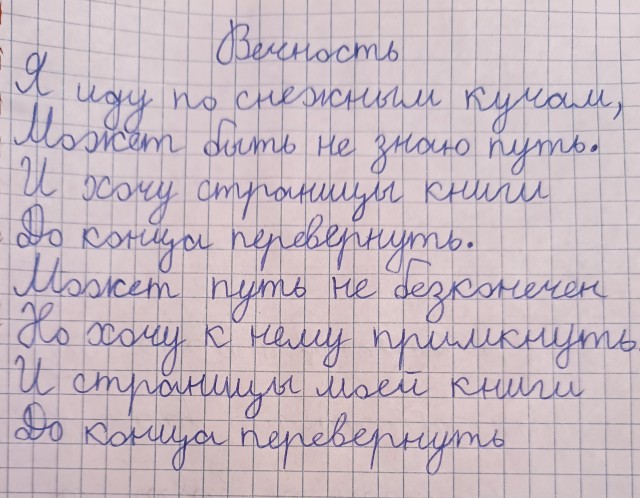 Вечность
Я иду по снежным кучам,
Может быть не знаю путь.
И хочу страницы книги
До конца перевернуть.
Может путь не безконечен
Но хочу к нему примкнуть
И страницы моей книги
До конца перевернуть